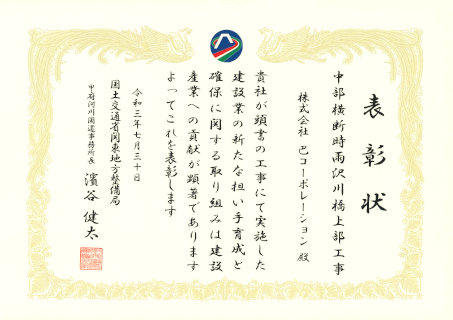 表彰状
中部横断時雨沢川橋上部工事
株式会社 巴コーポレーション 殿
貴社が頭書の工事にて実施した
建設業の新たな担い手育成と
確保に関する取り組みは建設
産業への貢献が顕著であります
よってこれを表彰します
令和三年七月三十日
国土交通省関東地方整備局
甲府河川国道事務所長 濱谷健太